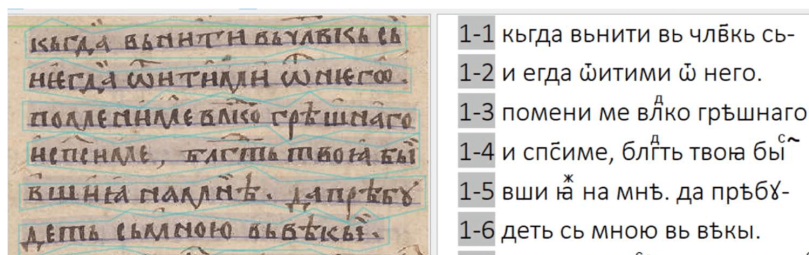 кьгда вьнити вьчл҃вкь сь
и егда ѿитими ѿнѥго.
помениме влⷣко грѣшнаго
испс҃име, блгⷣть твоꙗ бы
вши ꙗ намнѣ. дапрѣбꙋ
деть сьмною вьвѣкы.
1-1 кьгда вьнити вь члв҃кь сь-
1-2 и егда ѿитими ѿ него.
1-3 помени ме влⷣко грѣшнаго
1-4 и спс҃име, блгⷣть твоꙗ быⷭ҇
1-5 вши ꙗⷤ на мнѣ. да прѣбꙋ-
1-6 деть сь мною вь вѣкы.